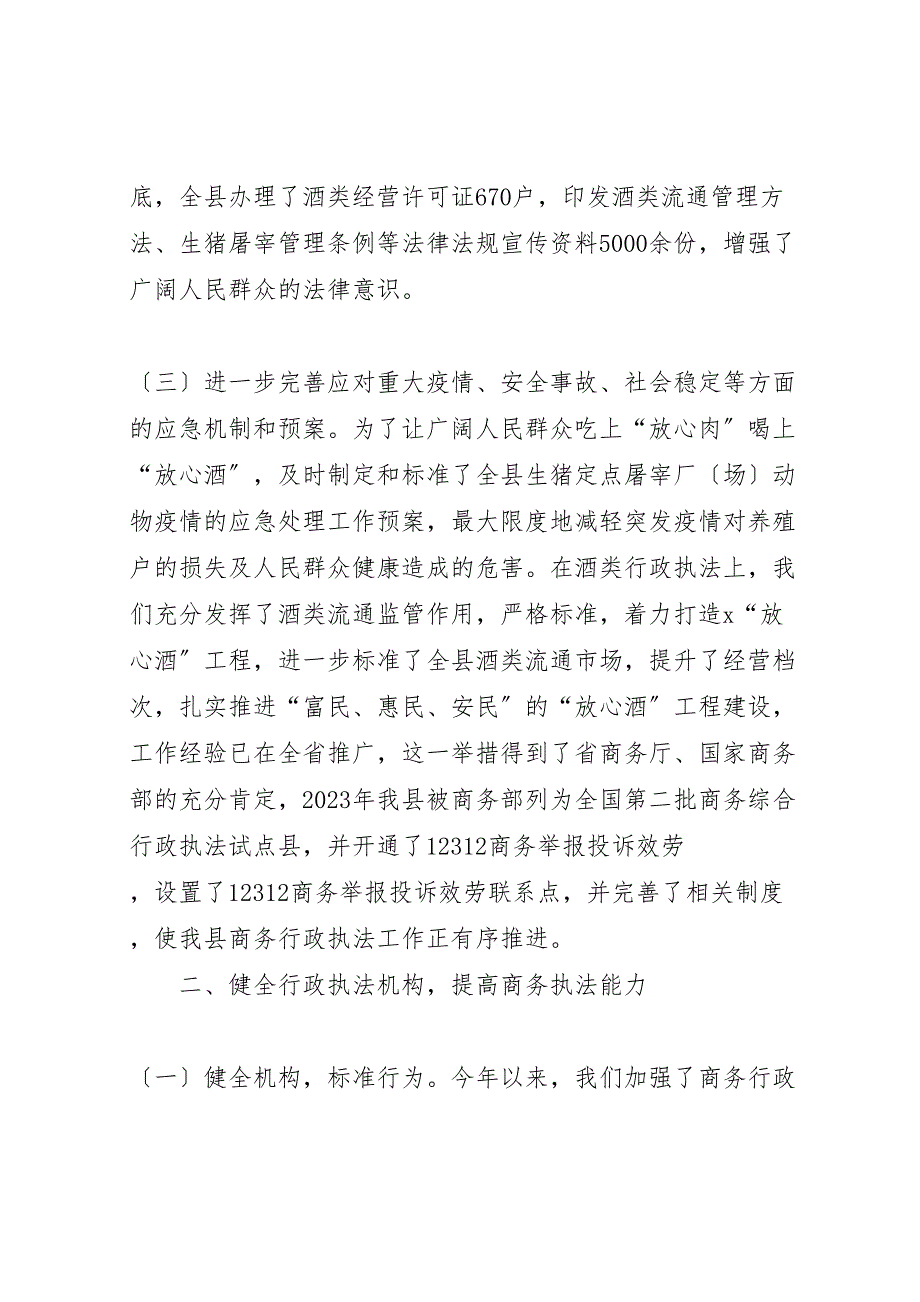 底，全县办理了酒类经营许可证670户，印发酒类流通管理方
法、生猪屠宰管理条例等法律法规宣传资料5000余份，增强了
广阔人民群众的法律意识。
〔三〕进一步完善应对重大疫情、安全事故、社会稳定等方面
的应急机制和预案。为了让广阔人民群众吃上“放心肉〞喝上
“放心酒〞，及时制定和标准了全县生猪定点屠宰厂〔场〕动
物疫情的应急处理工作预案，最大限度地减轻突发疫情对养殖
户的损失及人民群众健康造成的危害。在酒类行政执法上，我
们充分发挥了酒类流通监管作用，严格标准，着力打造x“放
心酒〞工程，进一步标准了全县酒类流通市场，提升了经营档
次，扎实推进“富民、惠民、安民〞的“放心酒〞工程建设，
工作经验已在全省推广，这一举措得到了省商务厅、国家商务
部的充分肯定，2023年我县被商务部列为全国第二批商务综合
行政执法试点县，并开通了12312商务举报投诉效劳
，设置了12312商务举报投诉效劳联系点，并完善了相关制度
，使我县商务行政执法工作正有序推进。
二、健全行政执法机构，提高商务执法能力
〔一〕健全机构，标准行为。今年以来，我们加强了商务行政